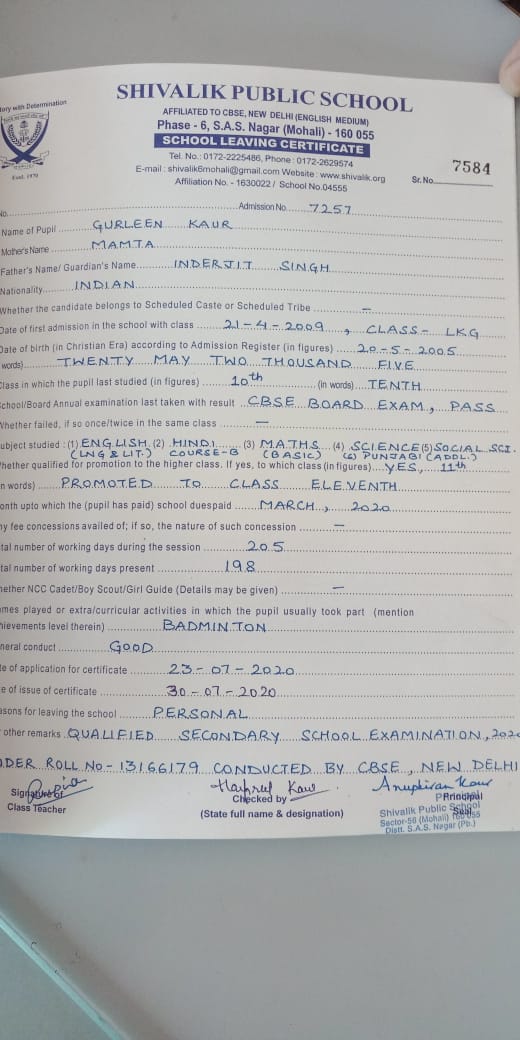 tory with Determination
SHIVALIK PUBLIC SCHOOL
AFFILIATED TO CBSE, NEW DELHI (ENGLISH MEDIUM)
Phase - 6, S.A.S. Nagar (Mohali) - 160 055
SCHOOL LEAVING CERTIFICATE
Tel. No.: 0172-2225486, Phone : 0172-2629574
E-mail : shivalik6mohali@gmail.com Website : www.shivalik.org
Affiliation No. - 1630022 / School No.04555
Estd. 1970
Sr. No. 7584
No. Admission No. 7257
Name of Pupil GURLEEN KAUR
Mother's Name MAMTA
Father's Name/ Guardian's Name INDERJIT SINGH
Nationality INDIAN
Whether the candidate belongs to Scheduled Caste or Scheduled Tribe —
Date of first admission in the school with class 21-4-2009, CLASS- LKG
Date of birth (in Christian Era) according to Admission Register (in figures) 20-5-2005
words) TWENTY MAY TWO THOUSAND FIVE
Class in which the pupil last studied (in figures) 10th (in words) TENTH
School/Board Annual examination last taken with result CBSE BOARD EXAM, PASS
Whether failed, if so once/twice in the same class —
ubject studied : (1) ENGLISH (2) HINDI (3) MATHS (4) SCIENCE (5) SOCIAL SCI.
(LNG & LIT.) COURSE-B (BASIC) (6) PUNJABI (ADDL.)
hether qualified for promotion to the higher class. If yes, to which class (in figures) YES, 11th
n words) PROMOTED TO CLASS ELEVENTH
onth upto which the (pupil has paid) school duespaid MARCH, 2020
ny fee concessions availed of; if so, the nature of such concession —
tal number of working days during the session 205
tal number of working days present 198
hether NCC Cadet/Boy Scout/Girl Guide (Details may be given) —
mes played or extra/curricular activities in which the pupil usually took part (mention
hievements level therein) BADMINTON
neral conduct GOOD
te of application for certificate 23-07-2020
e of issue of certificate 30-07-2020
asons for leaving the school PERSONAL
other remarks QUALIFIED SECONDARY SCHOOL EXAMINATION, 2020
DER ROLL No- 13166179 CONDUCTED BY CBSE, NEW DELHI
Harpreet Kaur Anupkiran Kaur
Signature of Checked by Principal
Class Teacher (State full name & designation) Seal
Principal
Shivalik Public School
Sector-56 (Mohali) 160 055
Distt. S.A.S. Nagar (Pb.)